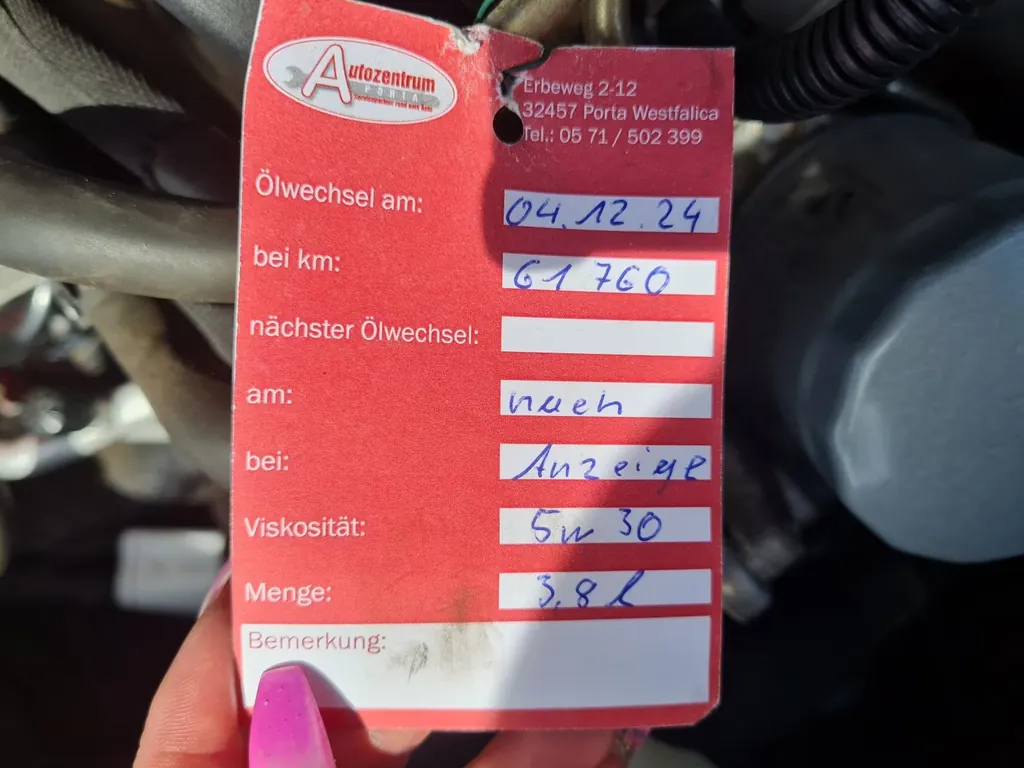 Autozentrum
PORTA
Erbeweg 2-12
32457 Porta Westfalica
Tel.: 05 71 / 502 399
Ölwechsel am: 04.12.24
bei km: 61 760
nächster Ölwechsel:
am: nach
bei: Anzeige
Viskosität: 5w 30
Menge: 3,8 l
Bemerkung: